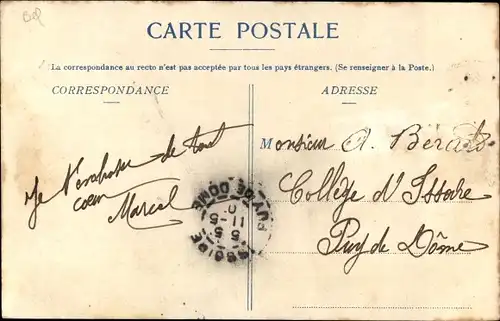 CARTE POSTALE
La correspondance au recto n'est pas acceptée par tous les pays étrangers. (Se renseigner à la Poste.)
CORRESPONDANCE
ADRESSE
Je t'embrasse de tout
cœur
Marcel
Monsieur A. Berard
Collège d'Issoire
Puy de Dôme
ISSOIRE
PUY-DE-DOME